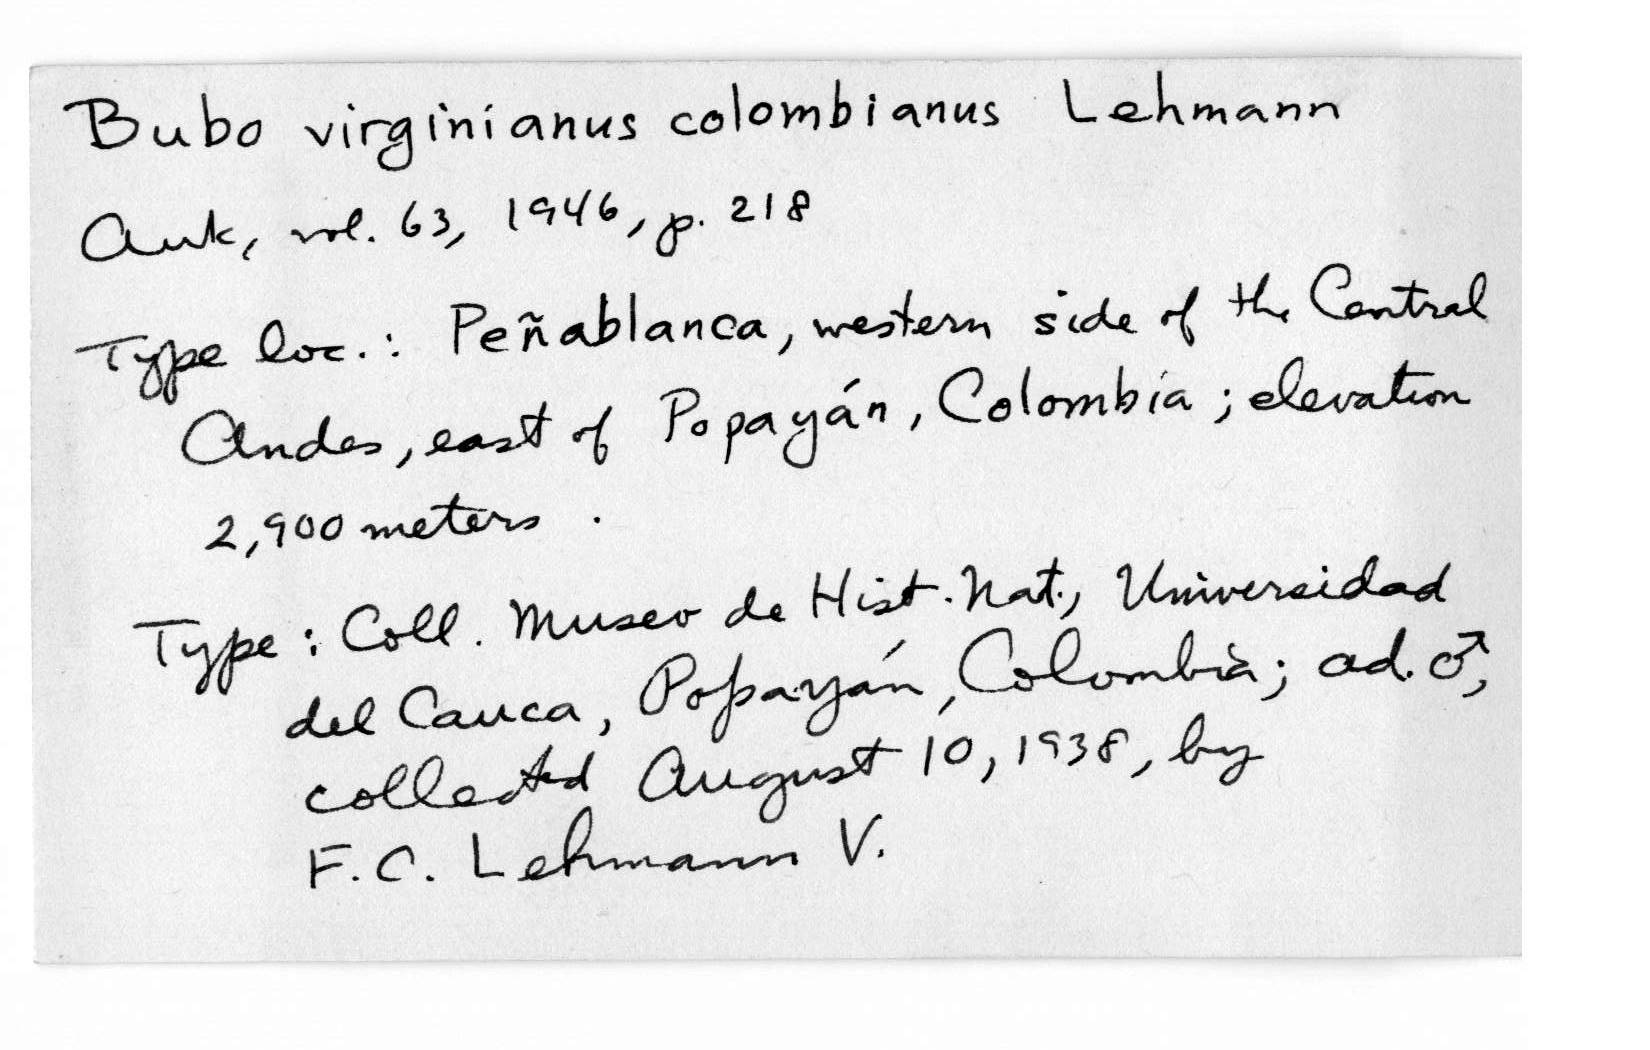 Bubo virginianus colombianus Lehmann
Auk, vol. 63, 1946, p. 218
Type loc.: Peñablanca, western side of the Central
Andes, east of Popayán, Colombia; elevation
2,900 meters.
Type: Coll. Museo de Hist. Nat., Universidad
del Cauca, Popayán, Colombia; ad. ♂,
collected August 10, 1938, by
F. C. Lehmann V.